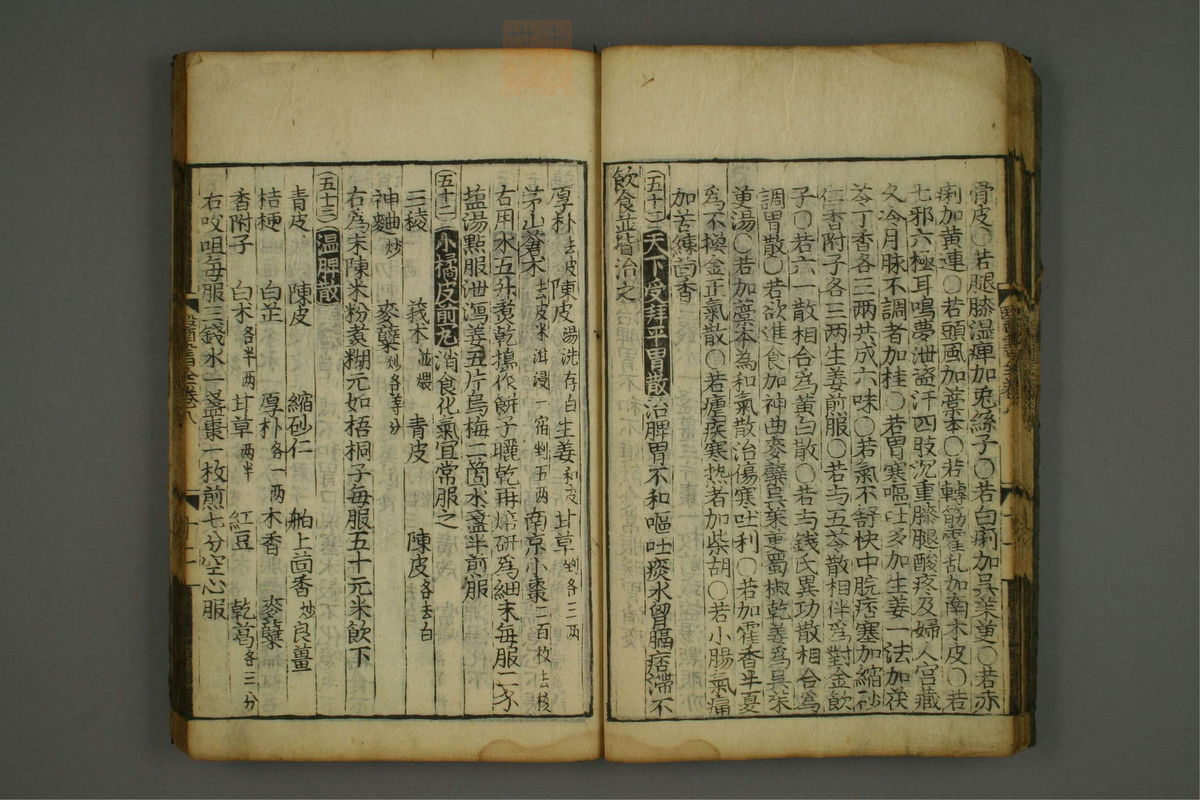 骨皮○若腿膝湿痺加兎絲子○若白痢加吳茱萸○若赤
痢加黄連○若頭風加藁本○若轉筋霍乱加南木皮○若
七邪六極耳鳴夢泄盗汗四肢沉重膝腿酸疼及婦人宫藏
久冷月脉不調者加桂○若胃寒嘔吐多加生姜一法加茯
苓丁香各三兩共成六味○若氣不舒快中脘痞塞加縮砂
仁香附子各三两生姜煎服○若与五苓散相伴爲對金飲
子○若六一散相合爲黄白散○若与錢氏異功散相合爲
調胃散○若欲進食加神曲麥糵吳茱萸蜀椒乾姜爲吳茱
萸湯○若加藁本為和氣散治傷寒吐利○若加藿香半夏
爲不換金正氣散○若瘧疾寒热者加柴胡○若小腸氣痛
加苦練茴香
(五十二)天下受拜平胃散治脾胃不和嘔吐痰水胷膈痞滯不
飲食並皆治之
厚朴去皮 陳皮湯洗存白 生姜和皮 甘草剉各三两
茅山蒼朮去皮米泔浸一宿剉五两 南京小棗二百枚去核
右用水五升煑乾搗作餅子曬乾再焙研爲細末每服二夕
盐湯點服泄瀉姜五片烏梅二箇水盞半煎服
(五十二)小橘皮煎元消食化氣宜常服之
三稜 莪朮並煨 青皮 陳皮各去白
神麯炒 麥糵炒各等分
右為末陳米粉煑糊元如梧桐子每服五十元米飲下
(五十三)温脾散
青皮 陳皮 縮砂仁 舶上茴香炒 良薑
桔梗 白芷 厚朴各一两 木香 麥糵
香附子 白朮各半两 甘草两半 紅豆 乾葛各三分
右㕮咀每服三錢水一盞棗一枚煎七分空心服